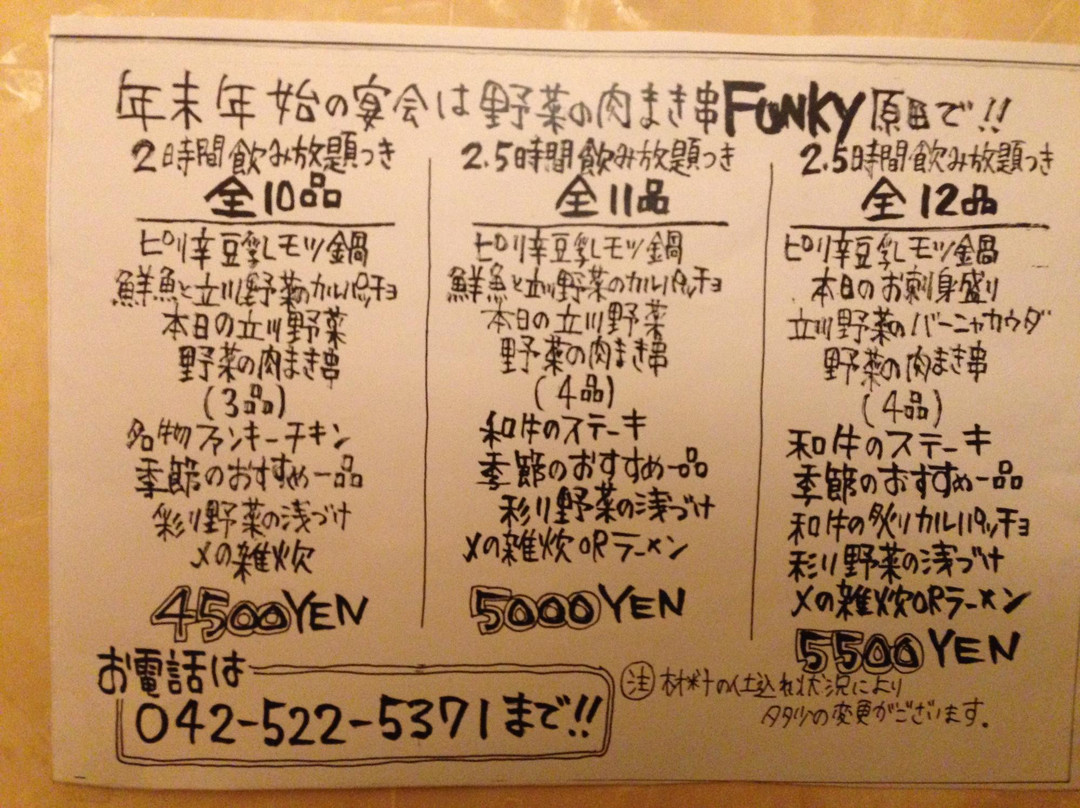 年末年始の宴会は野菜の肉まき串FUNKY原田で!!
2時間飲み放題つき
全10品
ピリ辛豆乳モツ鍋
鮮魚と立川野菜のカルパッチョ
本日の立川野菜
野菜の肉まき串
(3品)
名物ファンキーチキン
季節のおすすめ一品
彩り野菜の浅づけ
〆の雑炊
4500YEN
2.5時間飲み放題つき
全11品
ピリ辛豆乳モツ鍋
鮮魚と立川野菜のカルパッチョ
本日の立川野菜
野菜の肉まき串
(4品)
和牛のステーキ
季節のおすすめ一品
彩り野菜の浅づけ
〆の雑炊ORラーメン
5000YEN
2.5時間飲み放題つき
全12品
ピリ辛豆乳モツ鍋
本日のお刺身盛り
立川野菜のバーニャカウダ
野菜の肉まき串
(4品)
和牛のステーキ
季節のおすすめ一品
和牛の炙りカルパッチョ
彩り野菜の浅づけ
〆の雑炊ORラーメン
5500YEN
お電話は
042-522-5371まで!!
注 材料の仕込れ状況により
多少の変更がございます。